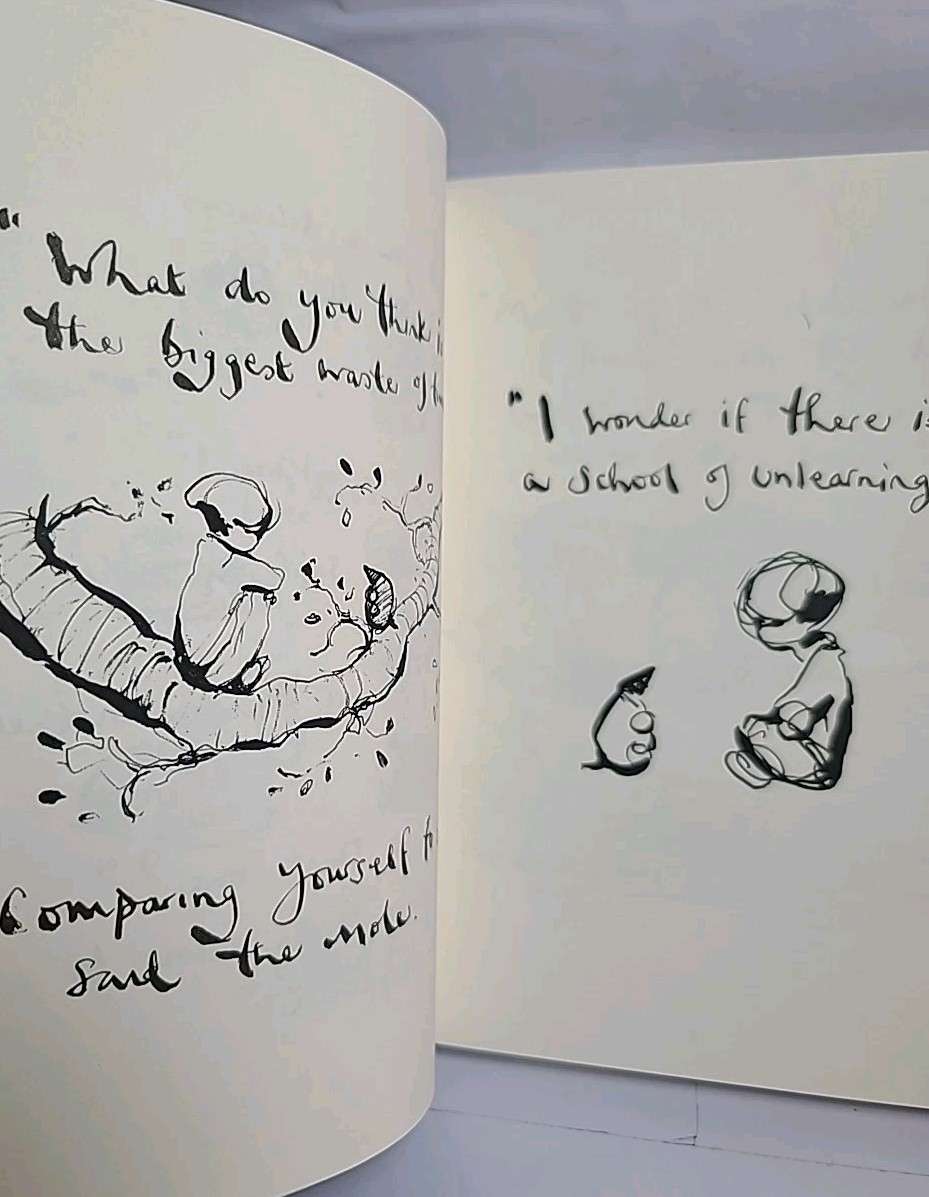 "What do you think
the biggest waste of
Comparing yourself
said the mole.
"I wonder if there is
a school of unlearning